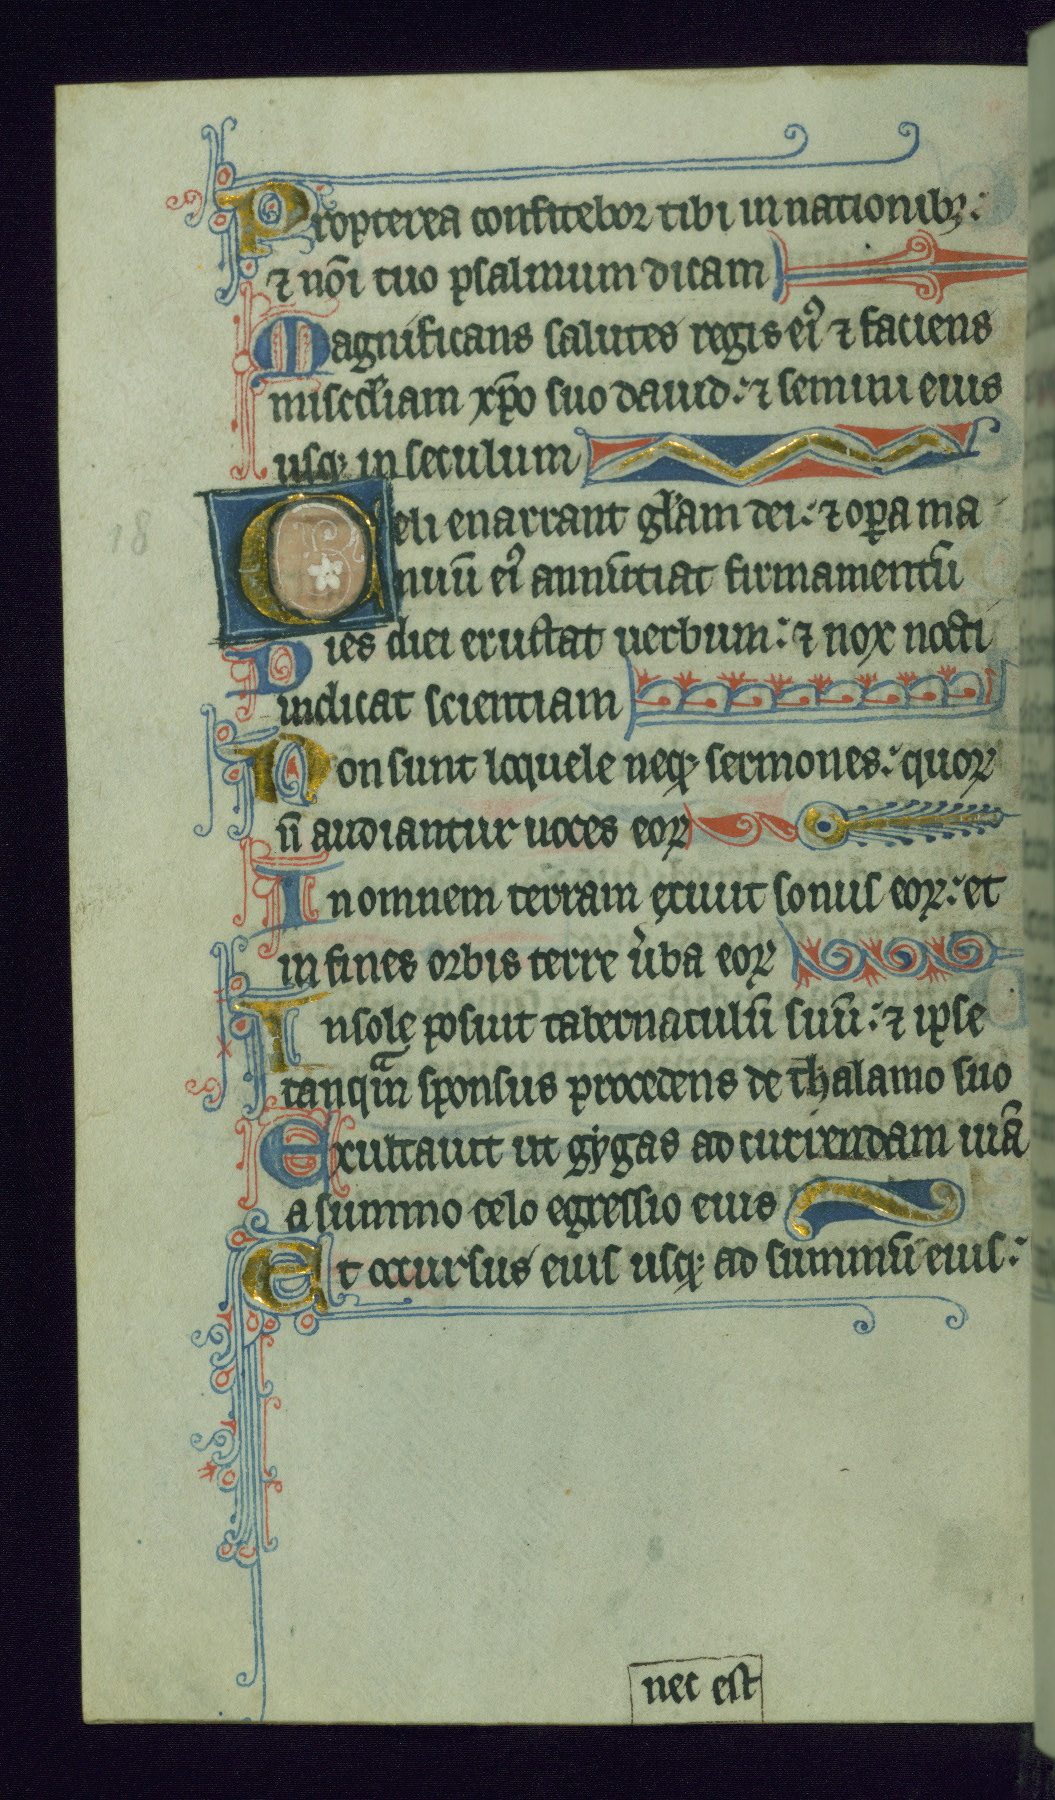 Propterea confitebor tibi in nationibꝫ:
⁊ noī tuo psalmum dicam
Magnificans salutes regis eiꝰ ⁊ faciens
misc̄diam xp̄o suo dauid: ⁊ semini eius
usqꝫ in seculum
18
Celi enarrant gl̄am dei: ⁊ oꝑa ma
nuū eiꝰ annūtiat firmamentū
Dies diei eructat uerbum: ⁊ nox nocti
indicat scientiam
Non sunt loquele neqꝫ sermones: quoꝝ
n̄ audiantur uoces eoꝝ
In omnem terram exiuit sonus eoꝝ: et
in fines orbis terre ūba eoꝝ
In sole posuit tabernaculū suū: ⁊ ipse
tanqᵃm sponsus procedens de thalamo suo
Exultauit ut gygas ad currendam uiā
a summo celo egressio eius
Et occursus eius usqꝫ ad summū eius:
nec est